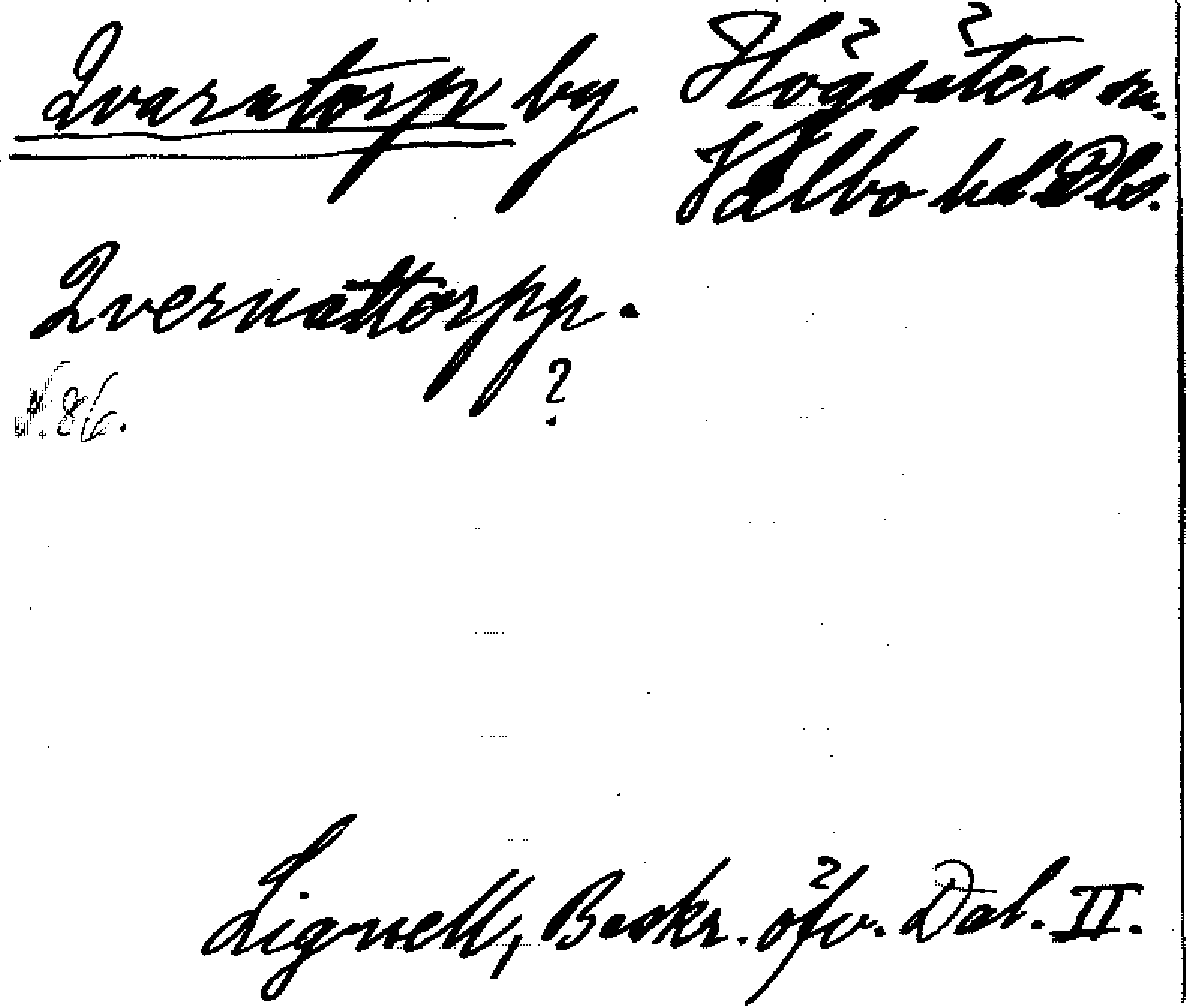 Qvarntorp by Högsäters sn.
Valbo hd. Dls.
Qvernættorpp.
?
N. 86.
Lignell, Beskr. öfv. Dal. II.